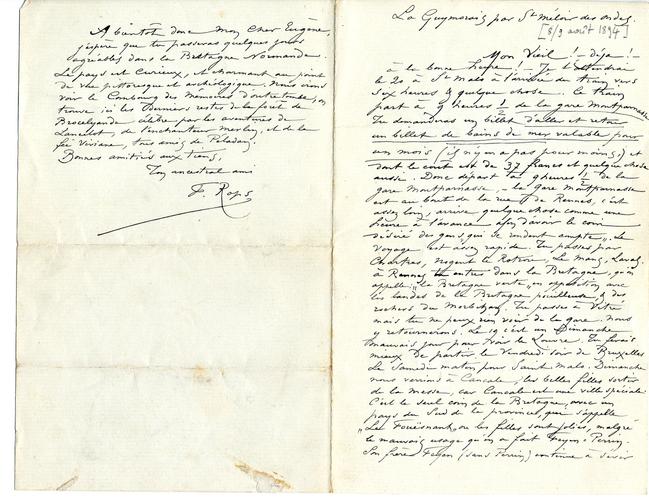 La Guymorais par St Méloir des ondes
[8/9 août 1894]
Mon Vieil ! – déjà ! –
à la bonne heure ! – Je t'attendrai
le 20 à St Malo à l'arrivée du train vers
six heures & quelque chose. le train
part à 9 heures ½ de la gare Montparnasse
Tu demanderas un billet d'aller et retour
un billet de bains de mer valable pour
un mois (il n'y en a pas pour moins,) et
dont le coût est de 37 francs et quelque chose
aussi. Donc départ à 9 heures ½ de la
gare Montparnasse, – la Gare Montparnasse
est au bout de la rue de Rennes, c'est
assez loin, arrive quelque chose comme une
heure à l'avance afin d'avoir le coin
désiré des gens qui se rendent compte". Le
voyage est assez rapide. Tu passes par
Chartres, nogent le Rotrou, Le Mans, Laval.
à Rennes tu entres dans la Bretagne, qu'on
appelle: „la Bretagne verte" en opposition avec
les landes de la Bretagne pouilleuse, & des
rochers du Morbihan. Tu passes à Vitré
mais tu ne peux rien voir de la gare. nous
y retournerons. Le 19 c'est un Dimanche
mauvais jour pour voir le Louvre. Tu ferais
mieux de partir le Vendredi soir de Bruxelles
Le Samedi matin pour Saint Malo. Dimanche
nous verrions à Cancale, les belles filles sortir
de la messe, car Cancale est une ville spéciale
C'est le seul coin de la Bretagne, avec un
pays du Sud de la province, qui s'appelle
„Le Fouësnant", où les filles sont jolies, malgré
le mauvais usage qu'en a fait Feyen-Perrin.
Son frère Feyen (sans Perrin) continue à sévir
A bientôt donc Mon Cher Eugène,
j'espère que tu passeras quelques jours
agréables dans la Bretagne Normande.
Le pays est Curieux, et charmant au point
de vue pittoresque et archéologique. Nous irons
voir le Combourg des Mémoires d'outre tombe, on
trouve ici les derniers restes de la forêt de
Brocelyande célèbre par les aventures de
Lancelot, de l'enchanteur Merlin, et de la
fée Viviane, tous amis de Péladan.
Bonnes amitiés aux tiens,
Ton ancestral ami
F. Rops